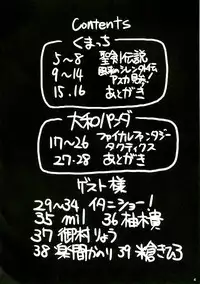 Contents
くまっち
5〜8 聖剣伝説
9〜14 風来のシレン外伝
アスカ見参!
15.16 あとがき
大和パンダ
17〜26 ファイナルファンタジー
タクティクス
27・28 あとがき
ゲスト様
29〜34 イタニショー!
35 mil 36 柚木貴
37 御村りょう
38 楽間かのり 39